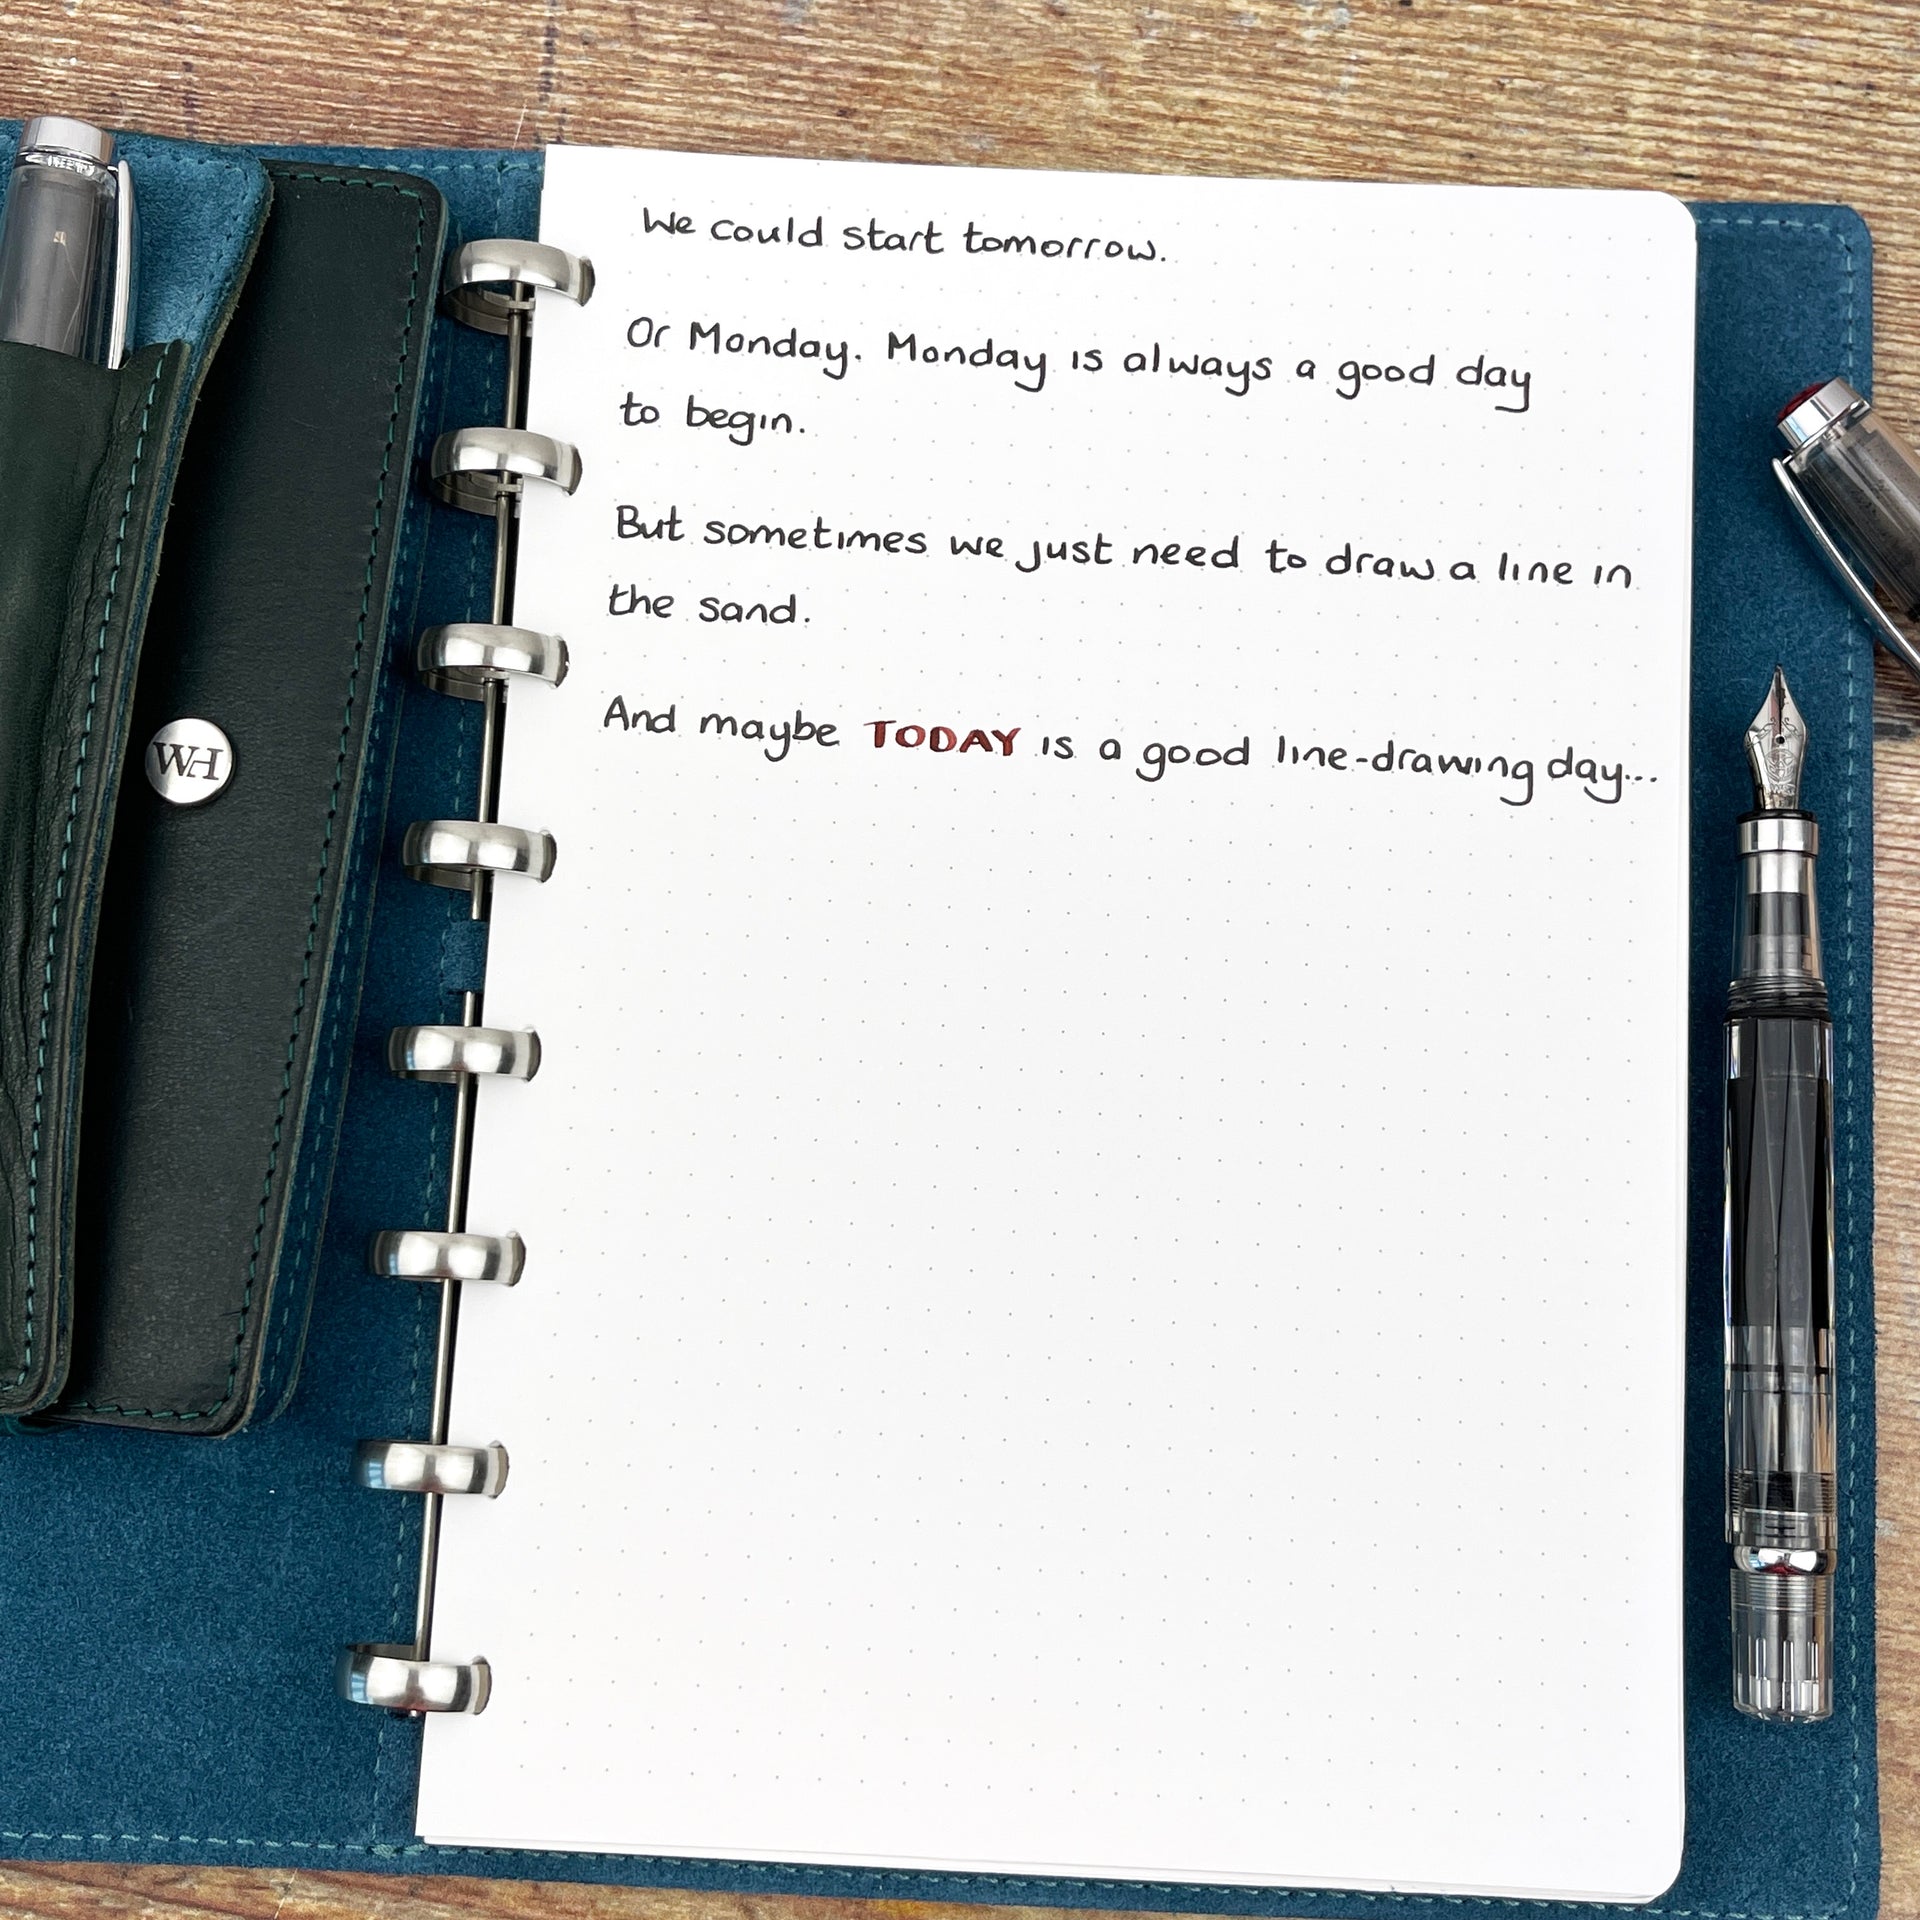 We could start tomorrow.
Or Monday. Monday is always a good day
to begin.
But sometimes we just need to draw a line in
the sand.
And maybe TODAY is a good line-drawing day...
WH